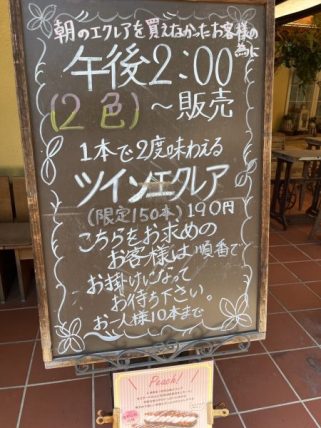 朝のエクレアを買えなかったお客様の
為に
午後2:00
(2色)～販売
1本で2度味わえる
ツインエクレア
(限定150本)190円
こちらをお求めの
お客様は順番で
お掛けになって
お待ち下さい。
お一人様10本まで
Peach!